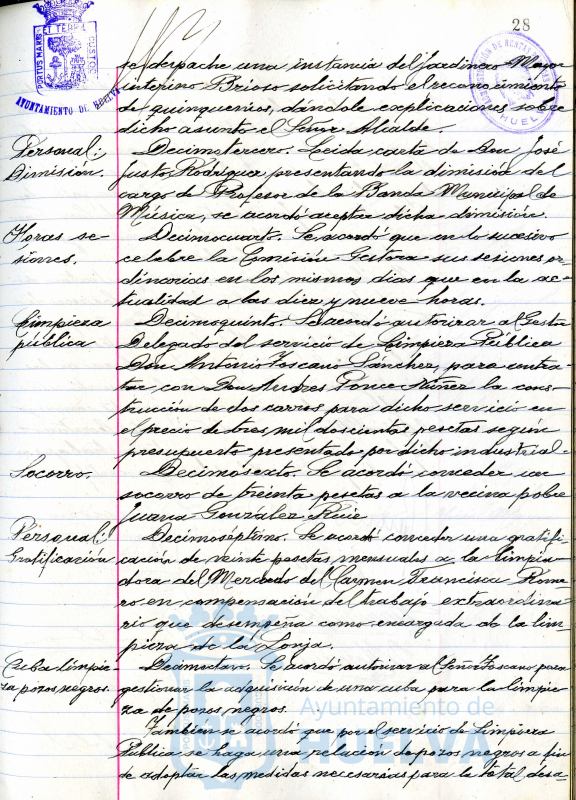 28
PORTUS MARIS ET TERRAE CUSTODIA
AYUNTAMIENTO DE HUELVA
ADMINISTRACIÓN DE RENTAS
HUEL
se despache una instancia del Jardinero Mayor
interino Brioso solicitando el reconocimiento
de quinquenios, dándole explicaciones sobre
dicho asunto el Señor Alcalde.
Personal: Dimisión.
Decimotercero. Leida carta de Don José
Justo Rodríguez presentando la dimisión del
cargo de Profesor de la Banda Municipal de
Música, se acordó aceptar dicha dimisión.
Horas sesiones.
Decimocuarto. Se acordó que en lo sucesivo
celebre la Comisión Gestora sus sesiones or-
dinarias en los mismos dias que en la ac-
tualidad a las diez y nueve horas.
Limpieza pública
Decimoquinto. Se acordó autorizar al Gestor
Delegado del servicio de Limpieza Pública
Don Antonio Toscano Sánchez, para contra-
tar con Don Andres Ponce Núñez la cons-
trucción de dos carros para dicho servicio en
el precio de tres mil doscientas pesetas según
presupuesto presentado por dicho industrial.
Socorro.
Decimosexto. Se acordó conceder un
socorro de treinta pesetas a la vecina pobre
Juana González Ruiz
Personal: Gratificación
Decimoséptimo. Se acordó conceder una gratifi-
cación de veinte pesetas mensuales a la limpia-
dora del Mercado del Carmen Francisca Rome-
ro en compensación del trabajo extraordina-
rio que desempeña como encargada de la lim-
pieza de la Lonja.
Cuba limpieza pozos negros.
Decimoctavo. Se acordó autorizar al Señor Toscano para
gestionar la adquisición de una cuba para la limpie-
za de pozos negros.
También se acordó que por el servicio de Limpieza
Pública se haga una relación de pozos negros a fin
de adoptar las medidas necesarias para la total desa-
Ayuntamiento de
HUELVA